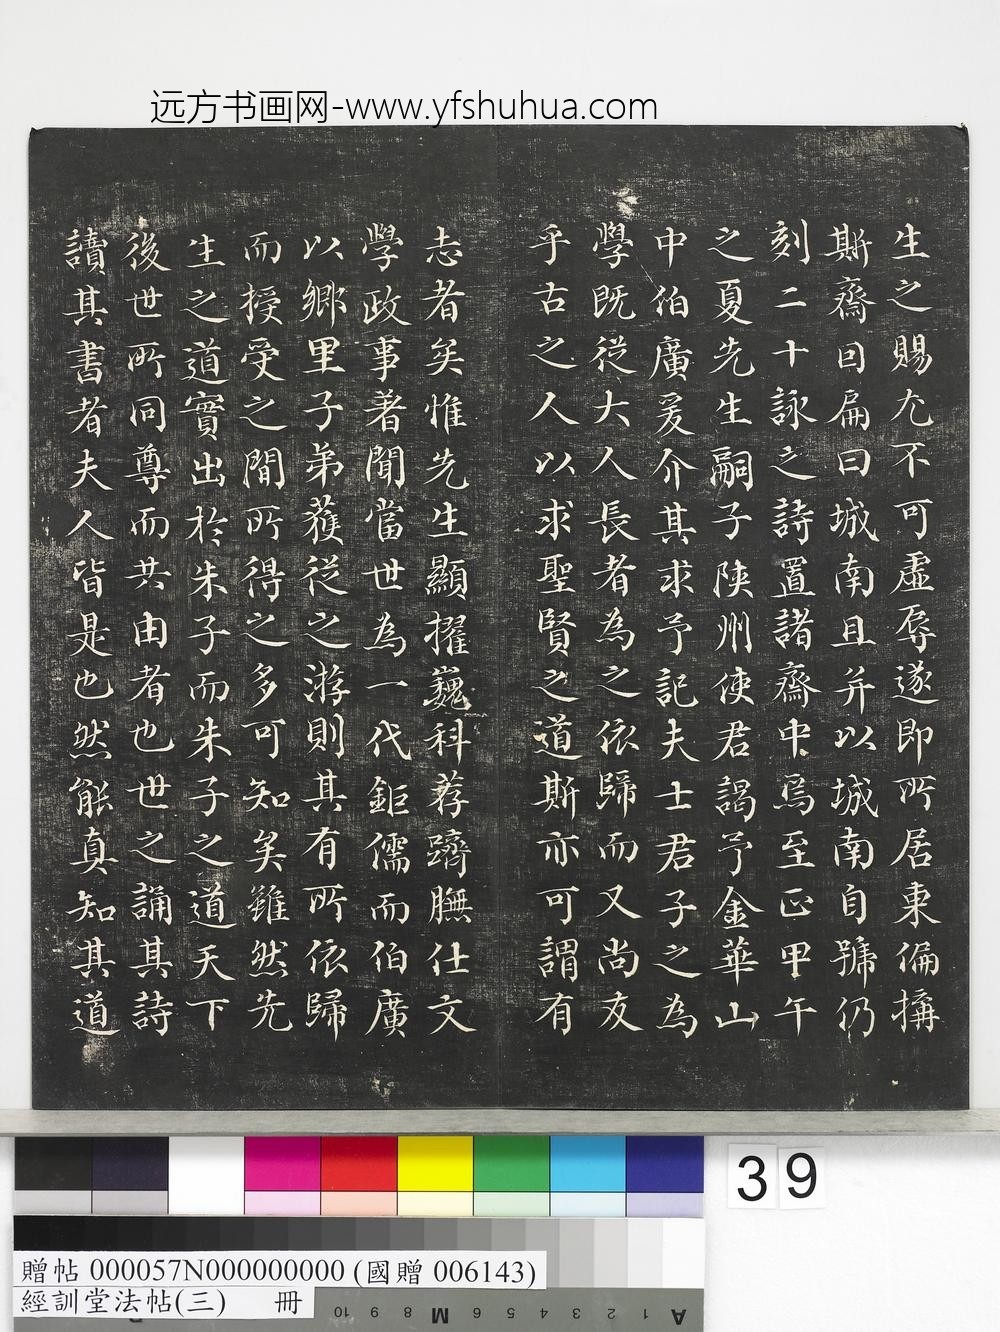 远方书画网-www.yfshuhua.com
生之賜尤不可虛辱遂即所居東偏搆
斯齋回扁曰城南且并以城南自號仍
刻二十詠之詩置諸齋中焉至正甲午
之夏先生嗣子陝州使君謁予金華山
中伯廣爰介其求予記夫士君子之為
學既從大人長者為之依歸而又尚友
乎古之人以求聖賢之道斯亦可謂有
志者矣惟先生顯擢巍科荐躋膴仕文
學政事著聞當世為一代鉅儒而伯廣
以鄉里子弟獲從之游則其有所依歸
而授受之間所得之多可知矣雖然先
生之道實出於朱子而朱子之道天下
後世所同尊而共由者也世之誦其詩
讀其書者夫人皆是也然能真知其道
39
贈帖 000057N000000000 (國贈 006143)
經訓堂法帖(三) 冊
A 1 2 3 4 5 6 M 8 9 10